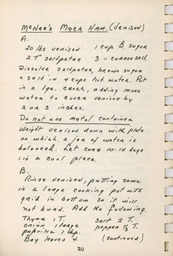 McNee's Mock Ham. (Venison)
A.
20 lbs venison 1 cup B. sugar
2 T saltpetre 3 -
Dissolve saltpetre, brown sugar
+ salt in 4 cups hot water. Put
in a lge. crock, adding more
water to cover venison by
2 or 3 inches.
Do not use metal container
Weight venison down with plate
on which a jar of water is
balanced. Let cure 10-14 days
in a cool place.
B.
Rinse venison, putting some
in a large cooking pot with
grid in bottom so it will
not burn. Add the following.
Thyme 1 T. salt 2 T.
onion 1 large pepper ½ T.
paprika 1 tsp.
Bay leaves 4 (continued)
20